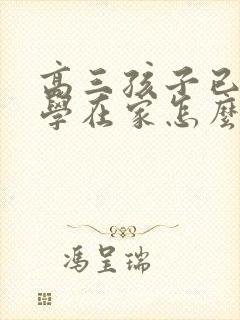 高三孩子已
學在家怎麼
馮呈瑞